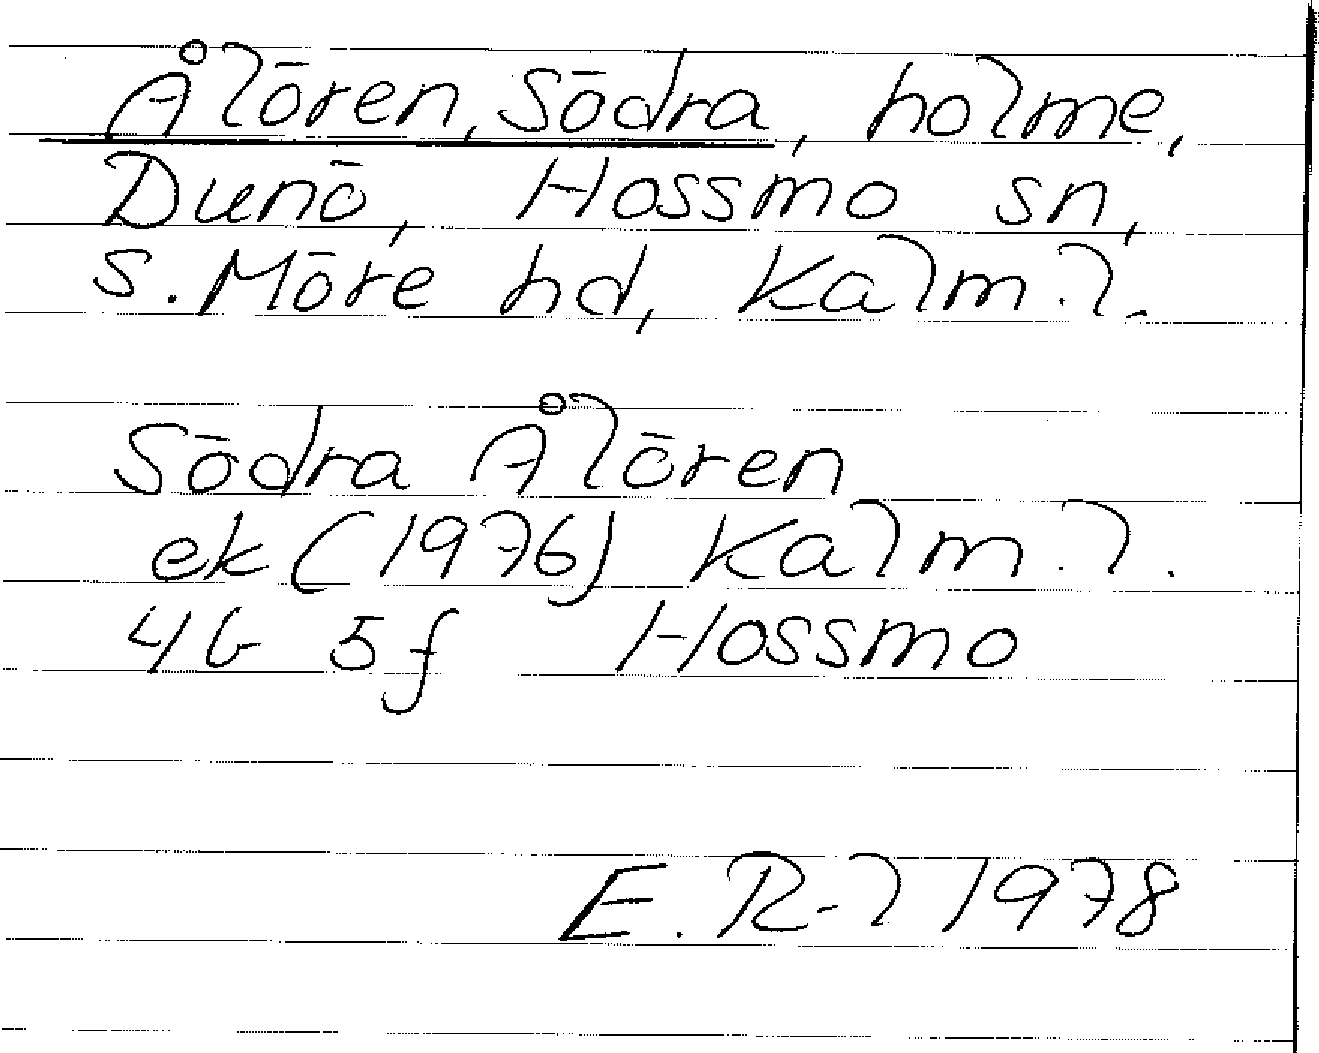 Ålören, Södra, holme,
Dunö, Hossmo sn,
S. Möre hd, Kalm. l.
Södra Ålören
ek (1976) Kalm. l.
4G 5f Hossmo
E. R-l 1978